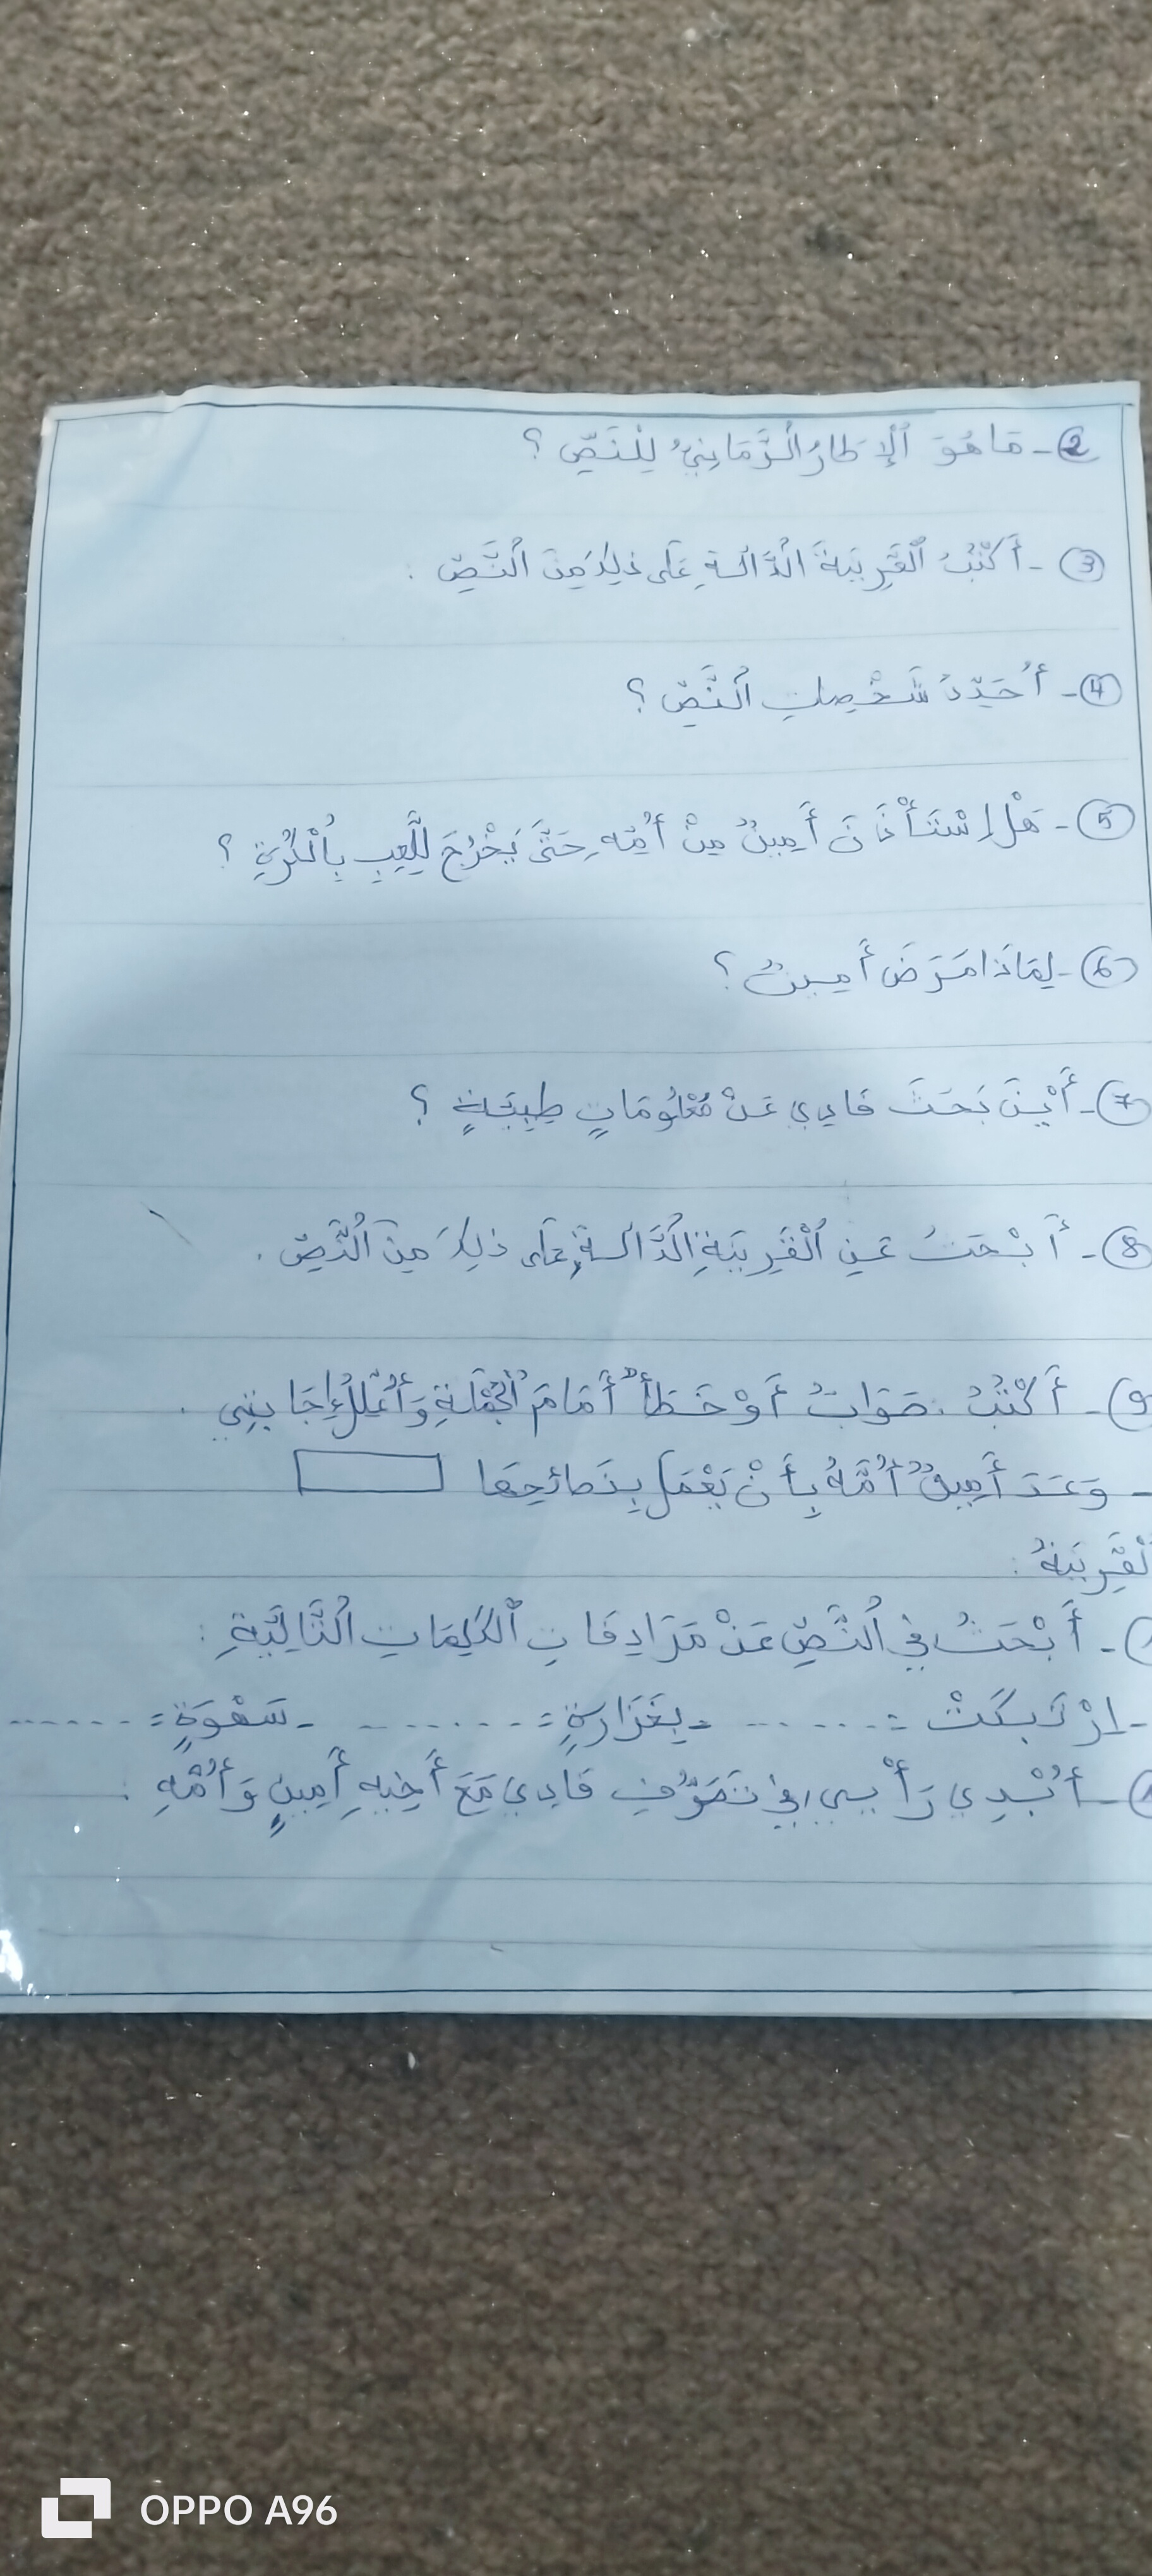 ② - مَا هُوَ ٱلْإِطَارُ ٱلزَّمَانِيُّ لِلنَّصِّ ؟
③ - أَكْتُبُ ٱلْقَرِينَةَ ٱلدَّالَّةَ عَلَى ذَلِكَ مِنَ ٱلنَّصِّ .
④ - أُحَدِّدُ شَخْصِيَاتِ ٱلنَّصِّ ؟
⑤ - هَلْ اِسْتَأْذَنَ أَمِينٌ مِنْ أُمِّهِ حَتَّى يَخْرُجَ لِلَّعِبِ بِٱلْكُرَةِ ؟
⑥ - لِمَاذَا مَرَضَ أَمِينٌ ؟
⑦ - أَيْنَ بَحَثَ فَادِي عَنْ مَعْلُومَاتٍ طِبِيَّةٍ ؟
⑧ - أَبْحَثُ عَنِ ٱلْقَرِينَةِ ٱلدَّالَّةِ عَلَى ذَلِكَ مِنَ ٱلنَّصِّ .
⑨ - أَكْتُبُ صَوَابٌ أَوْ خَطَأٌ أَمَامَ ٱلْجُمْلَةِ وَأُعَلِّلُ إِجَابَتِي .
- وَعَدَ أَمِينٌ أُمَّهُ بِأَنْ يَعْمَلَ بِنَصَائِحِهَا
لْقَرِينَةُ :
- أَبْحَثُ فِي ٱلنَّصِّ عَنْ مُرَادِفَاتِ ٱلْكَلِمَاتِ ٱلتَّالِيَّةِ :
- اِرْتَبَكَتْ = ....... - بِغَزَارَةٍ = ....... - سَهْوَةٍ = .......
- أُبْدِي رَأْيِي فِي تَصَرُّفِ فَادِي مَعَ أَخِيهِ أَمِينٍ وَأُمِّهِ :
OPPO A96